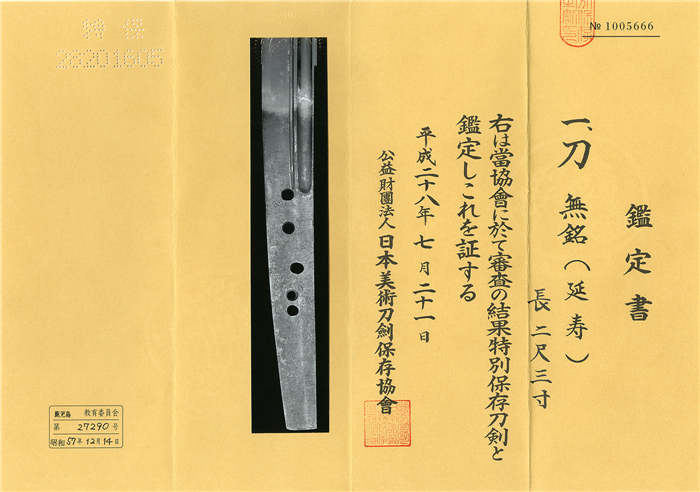 № 1005666
鑑定書
一、刀 無銘(延寿)
長二尺三寸
右は當協會に於て審査の結果特別保存刀剣と
鑑定しこれを証する
平成二十八年七月二十一日
公益財團法人 日本美術刀劍保存協會
特 径
28201605
鹿児島 教育委員会
第 27290 号
昭和57年12月14日